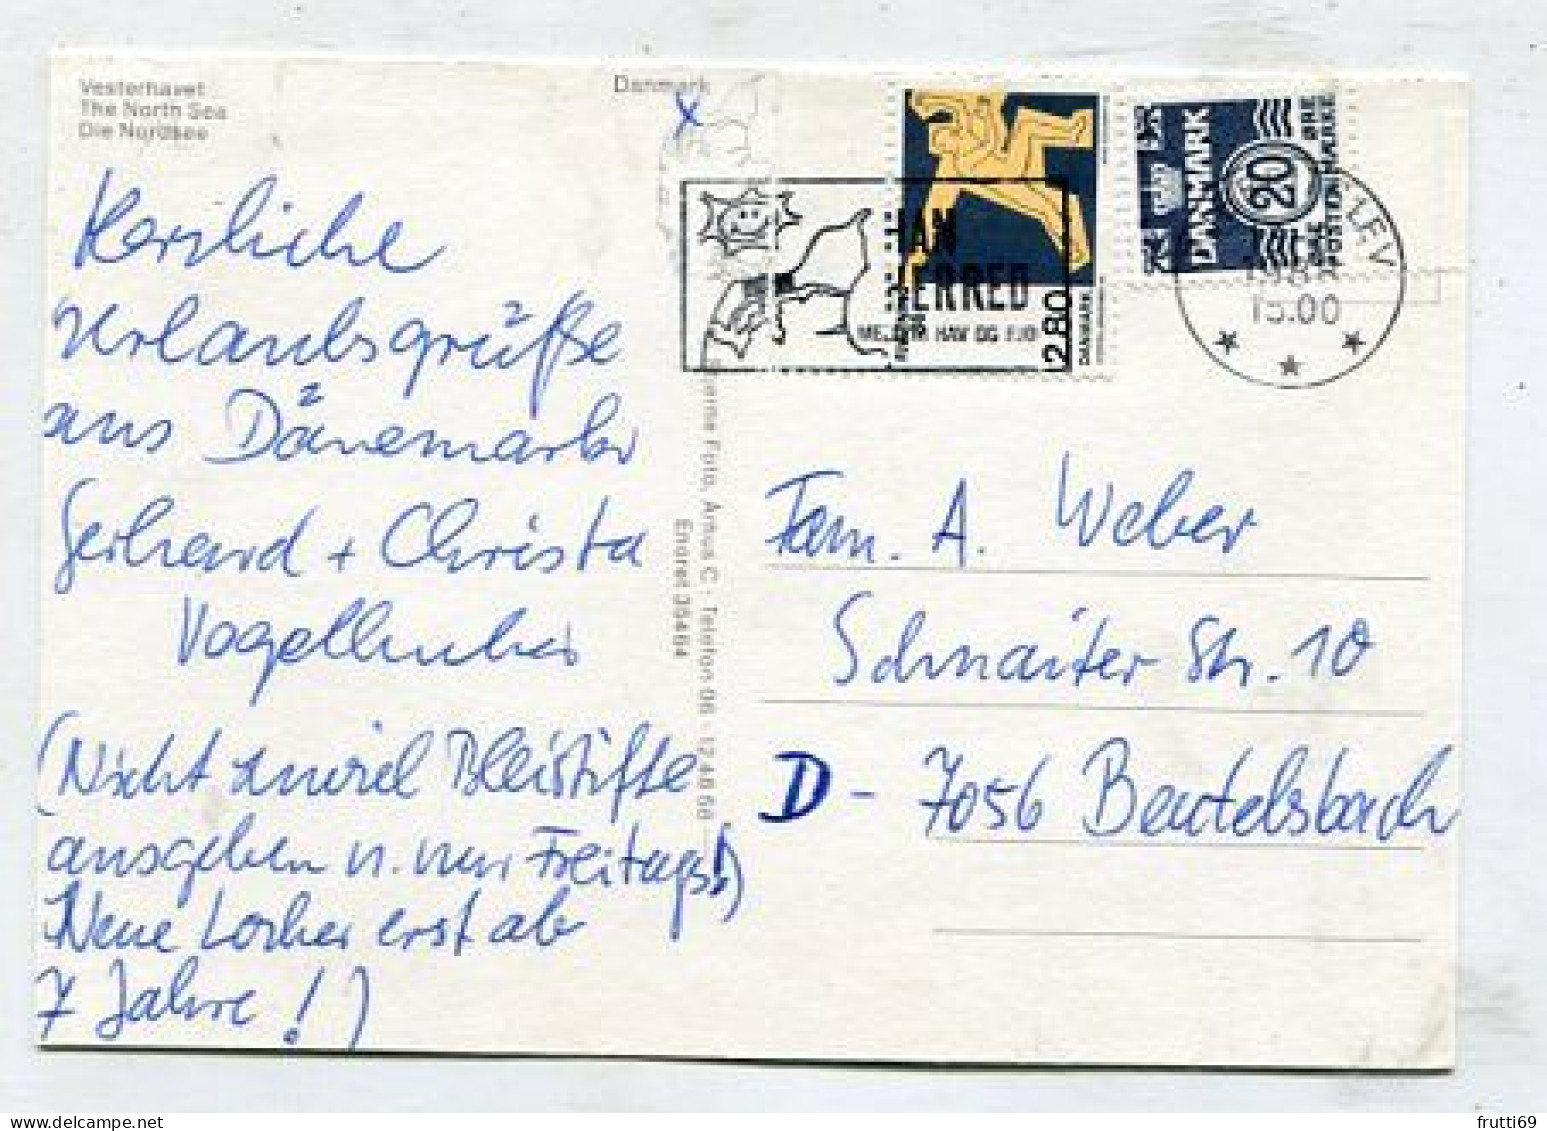 Vesterhavet
The North Sea
Die Nordsee
Danmark
x
Herzliche
Urlaubsgrüße
aus Dänemark
Gerhard + Christa
Vogellhuber
(Nicht zuviel Bleistifte
ausgeben u. nur Freitags!)
Neue Locher erst ab
7 Jahre!)
Foto, Århus C - Telefon 06 - 12 46 66
Eneret 35464
2.80
DANMARK
DANMARK
20
ØRE
POSTFRIMÆRKE
ØRE
HAV OG
LEV
15.00
Fam. A. Weber
Schnaiter Str. 10
D - 7056 Beutelsbach
frutti69